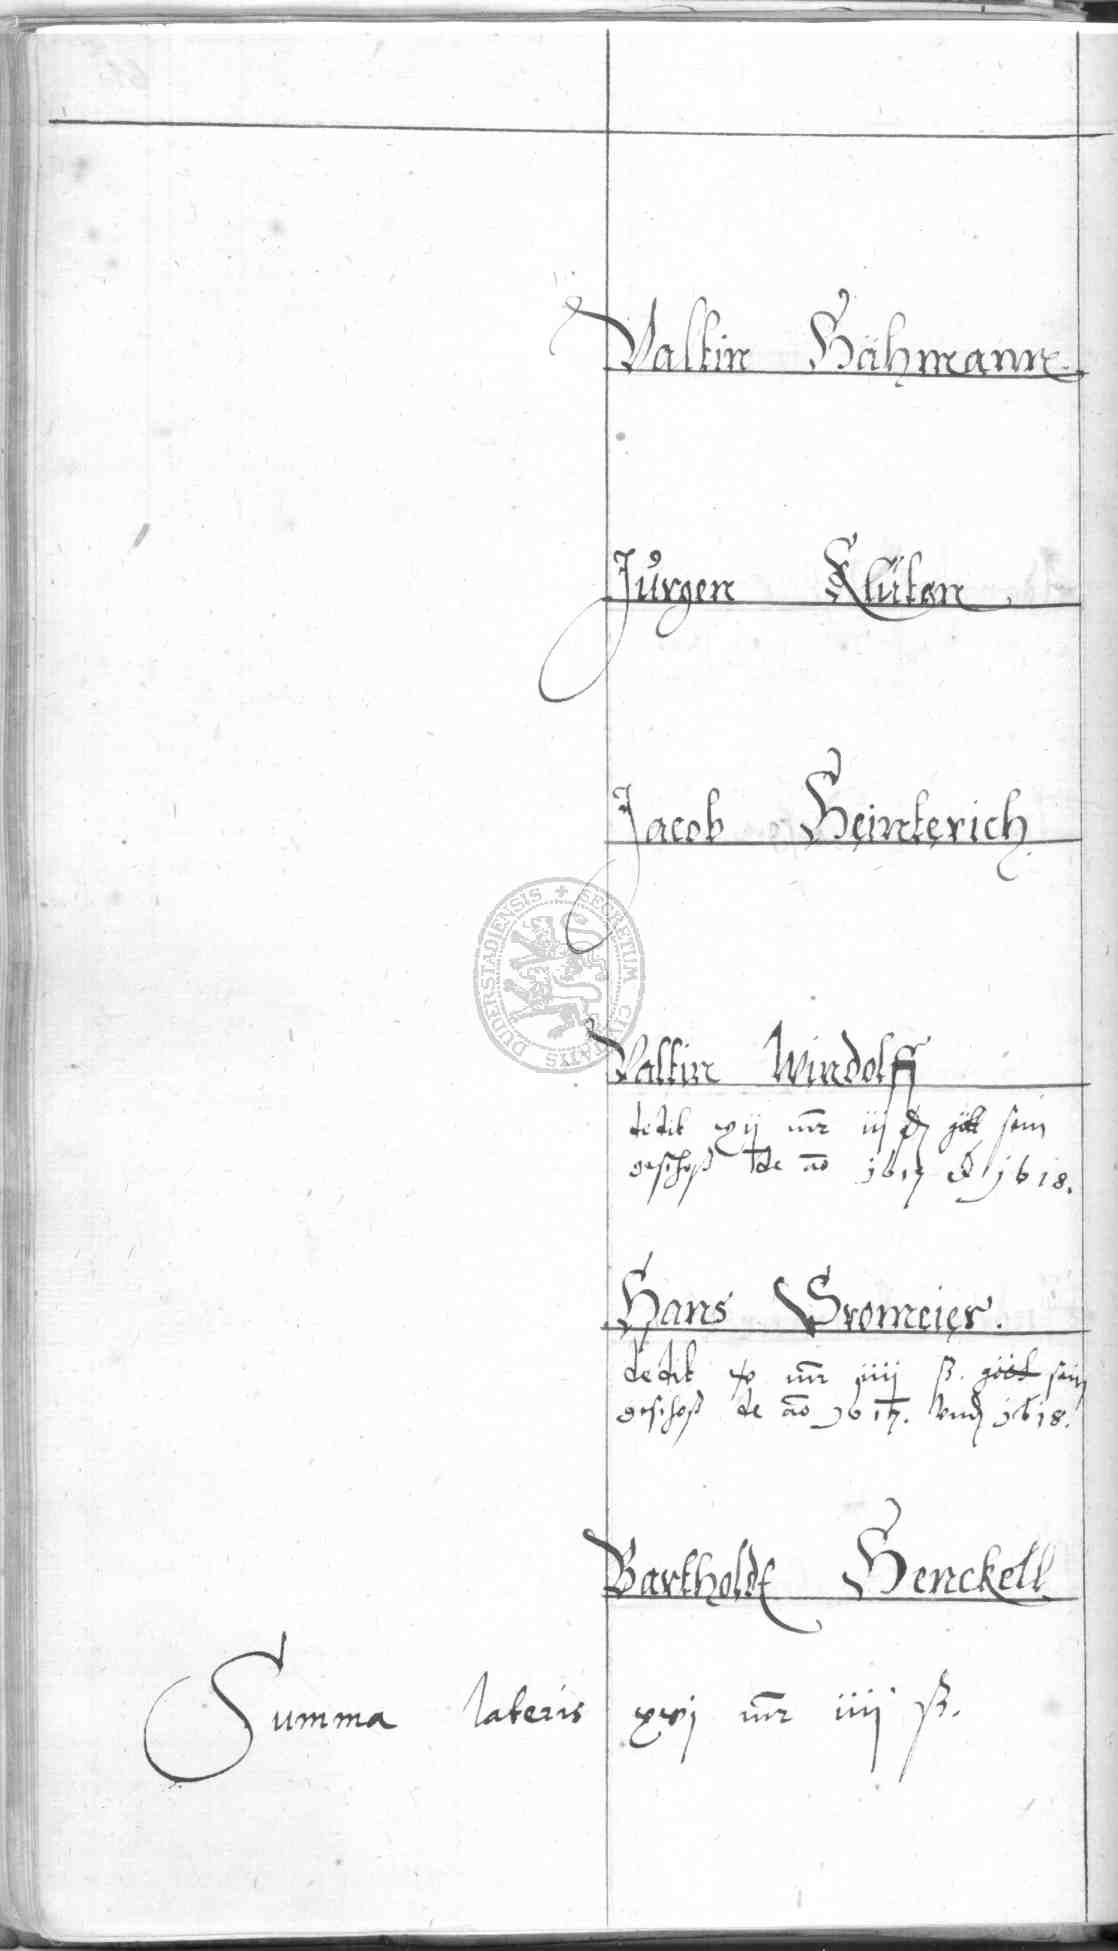 Valtin Hähmann
Jürgen Klüten
Jacob Heinterich
SECRETUM CIVITATYS DUDERSTADIENSIS
Valtin Windolff
dedit xij mr iij ₰ sein
geschoß de ao 1617 & 1618.
Hans Vromeier.
dedit x mr iiij ß. sein
geschoß de ao 1617. vnd 1618.
Bartholdt Henckell
Summa lateris xxij mr iiij ß.